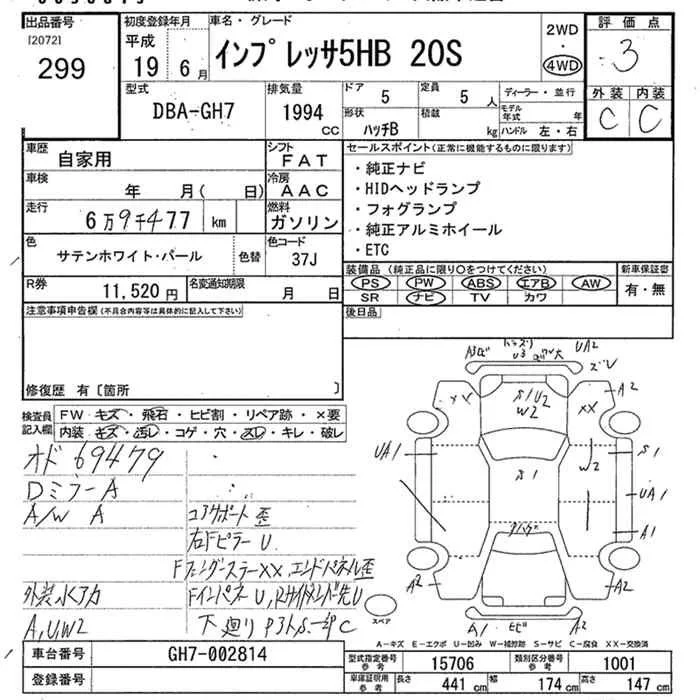 出品番号
[2072]
299
初度登録年月
平成
19 6月
車名・グレード
インプレッサ5HB 20S
2WD
・
4WD
評価点
3
外装 内装
C C
型式
DBA-GH7
排気量
1994
CC
ドア
5
定員
5人
形状
ハッチB
積載
kg
ディーラー・並行
モデル年式 年
ハンドル 左・右
車歴
自家用
シフト
FAT
車検
年 月( 日)
冷房
AAC
走行
6万9千477 km
燃料
ガソリン
色
サテンホワイト・パール
色替
色コード
37J
R券
11,520円
名変通知期限
月 日
セールスポイント(正常に機能するものに限ります)
・純正ナビ
・HIDヘッドランプ
・フォグランプ
・純正アルミホイール
・ETC
装備品 (純正品に限り○をつけてください)
PS PW ABS エアB AW
SR ナビ TV カワ
新車保証書
有・無
後日品
注意事項申告欄(不具合内容等は具体的に記入して下さい)
修復歴 有〔箇所 〕
検査員記入欄
FW キズ・飛石・ヒビ割・リペア跡・×要
内装 キズ・汚レ・コゲ・穴・スレ・キレ・破レ
オド 69479
Dミラー A
A/W A
コアサポート 歪
右Fピラー U
Fフェンダーステー××、エンドパネル歪
Fインパネ U、
外装水アカ
A,U,W2
下廻り
A3ヒビ
UA2
ズレ
A2
××
S1U2
W2
××
UA1
S1
W2
S1
UA1
A1
A2
A2
A1
ヒビ
A2
スペア
A-キズ E-エクボ U-凹み W-補修跡 S-サビ C-腐食 XX-交換済
車台番号
GH7-002814
登録番号
型式指定番号
参考
15706
類別区分番号
参考
1001
車庫証明用
参考
長さ 441 cm
幅 174 cm
高さ 147 cm